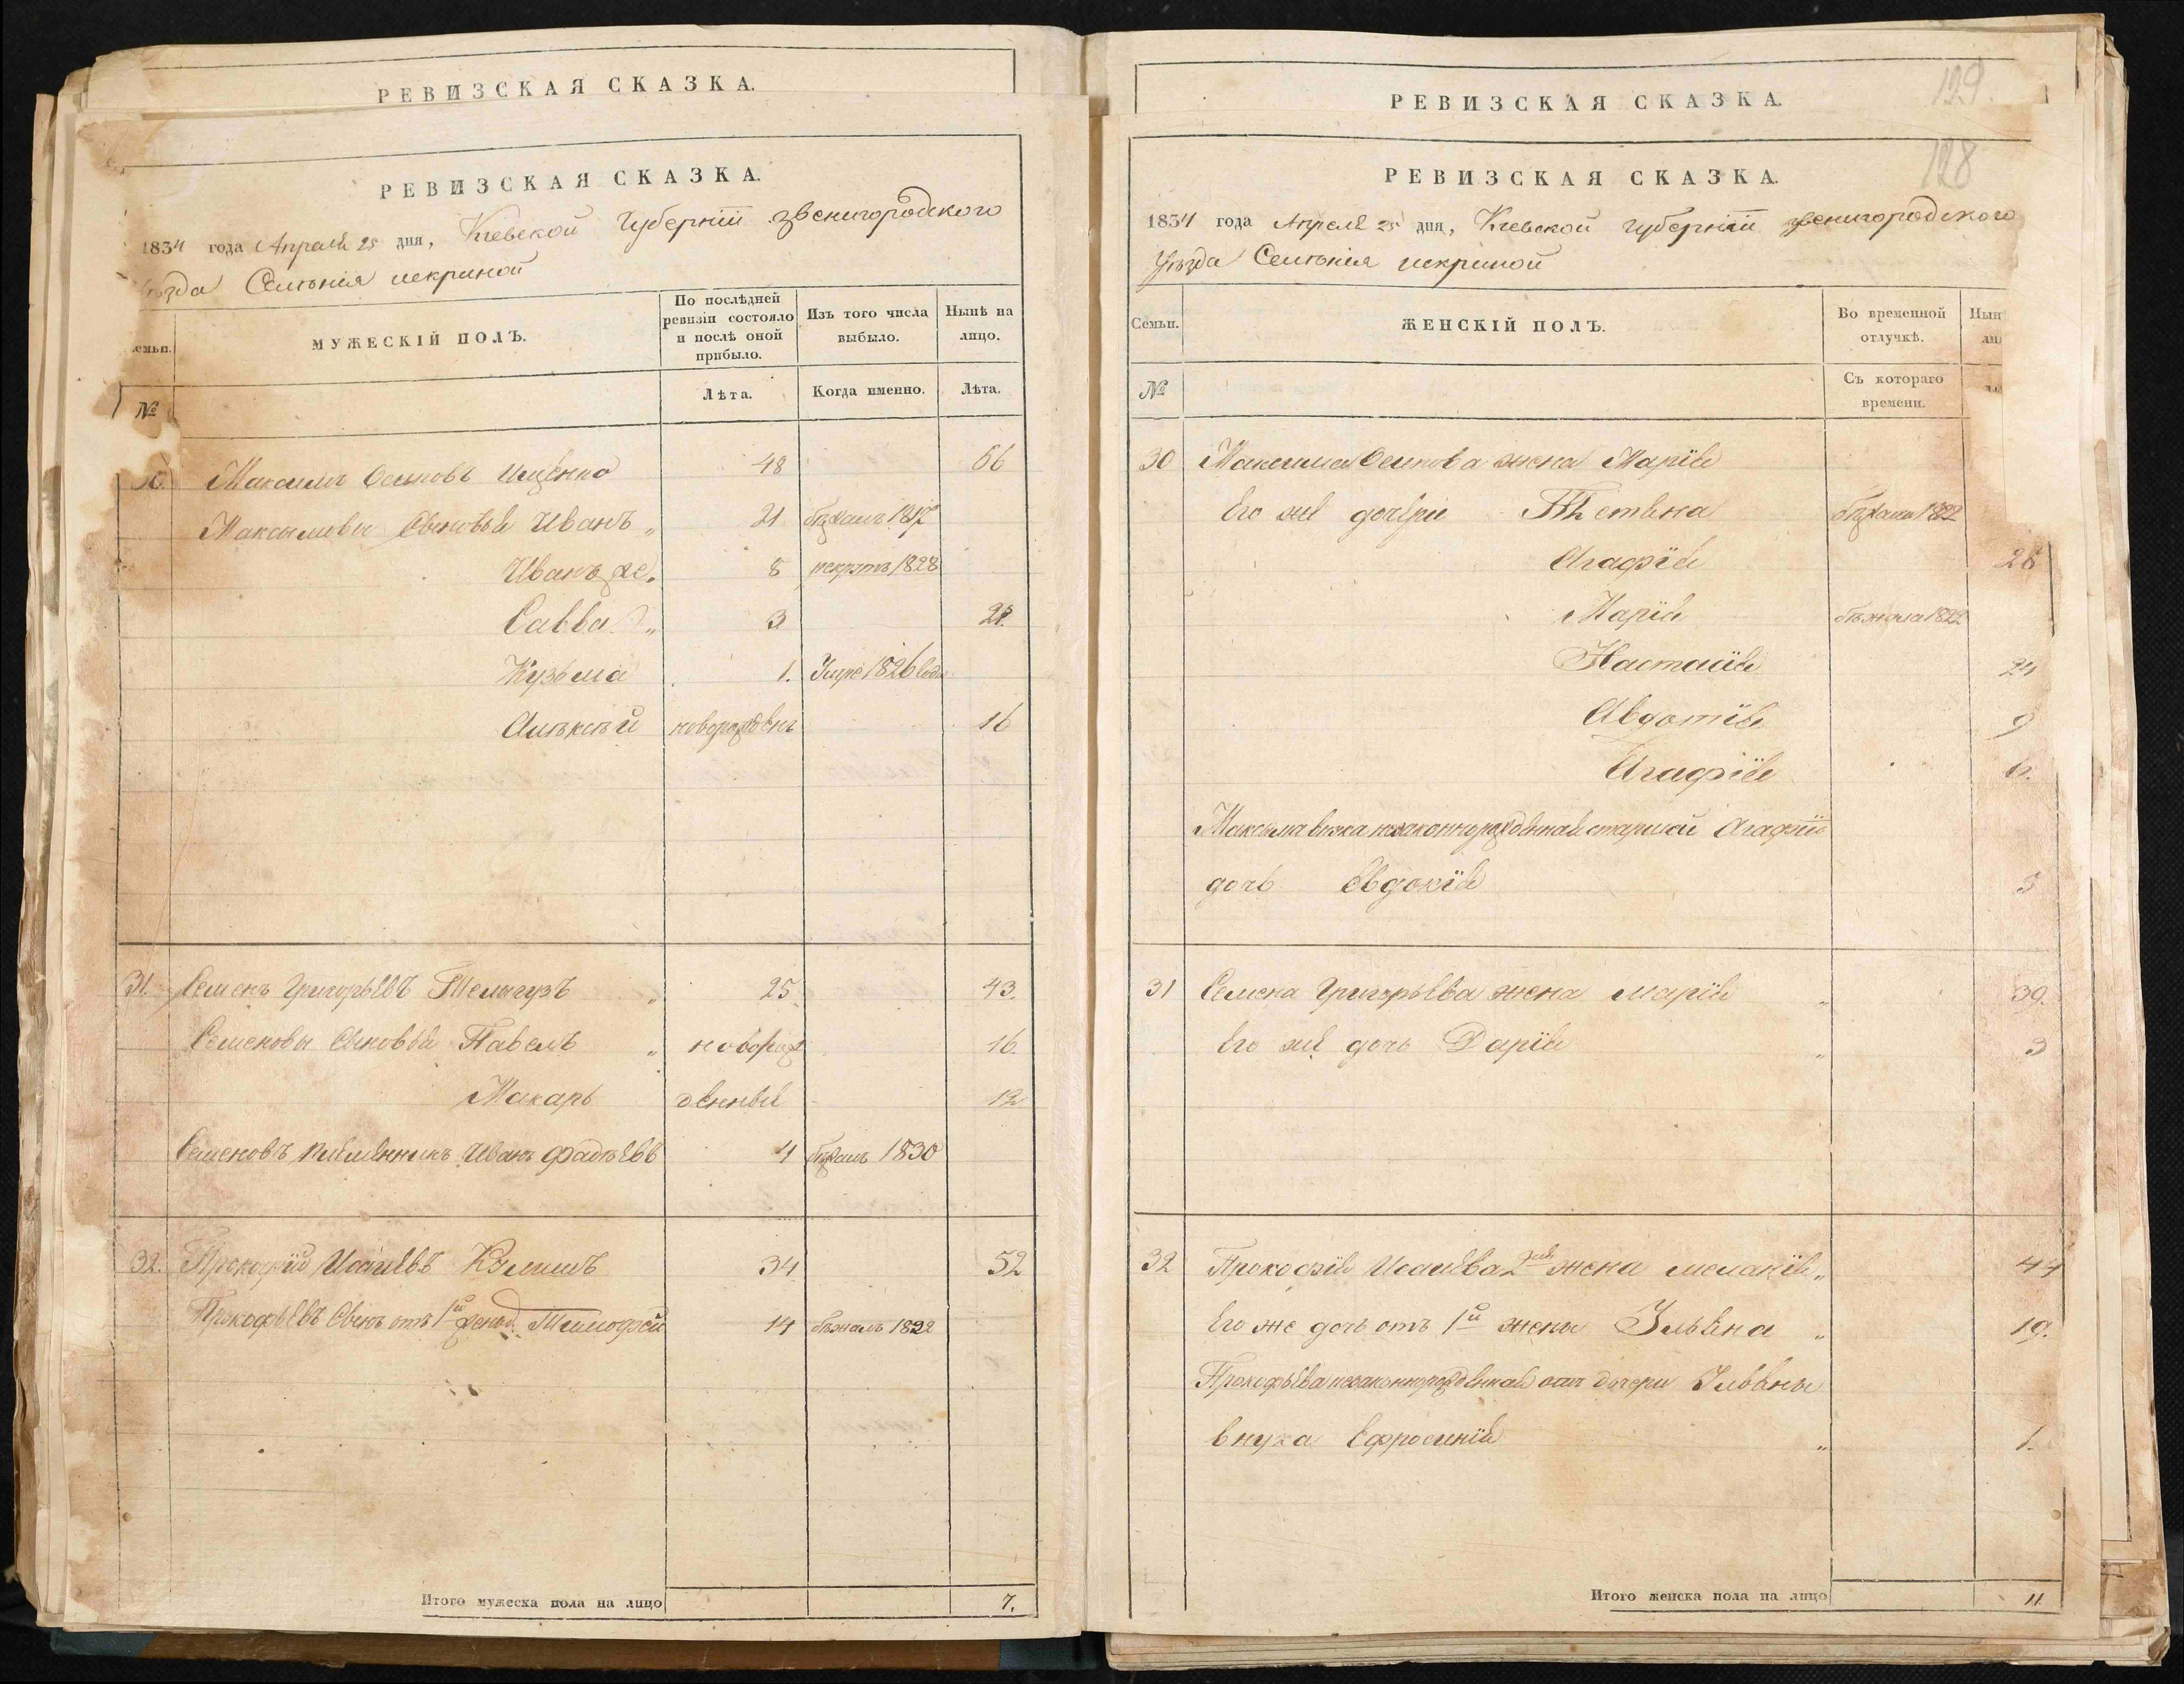 РЕВИЗСКАЯ СКАЗКА.
РЕВИЗСКАЯ СКАЗКА.
1834 года Апреля 25 дня, Киевской Губернии звенигородского
уѣзда Селѣния искриной
Семьи. МУЖЕСКІЙ ПОЛЪ. По послѣдней ревизіи состояло и послѣ оной прибыло. Изъ того числа выбыло. Нынѣ на лицо.
№ Лѣта. Когда именно. Лѣта.
30. Максимъ Осиповъ Ищенко 48 66
Максимовы Сыновья Иванъ „ 21 бѣжалъ 1817
Иванъ же „ 8 рекрутъ 1828
Савва „ 3 21.
Кузьма 1. Умре 1826 года
Алѣксѣй новорожденъ 16
31. Семенъ Григорьевъ Телегузъ „ 25. 43.
Семеновы Сыновья Павелъ „ новорож 16.
Макаръ денныя 12
Семеновъ племянникъ Иванъ Фадѣевъ 4 бѣжалъ 1830
32. Прокофій Исаиевъ Кулишъ 34 52
Прокофьевъ Сынъ отъ 1й жены Тимофей 14 бѣжалъ 1822
Итого мужеска пола на лицо 7.
129.
РЕВИЗСКАЯ СКАЗКА.
128
РЕВИЗСКАЯ СКАЗКА.
1834 года Апреля 25 дня, Киевской губернии звенигородского
Уѣзда Селѣния искриной
Семьи. ЖЕНСКІЙ ПОЛЪ. Во временной отлучкѣ. Нын
№ Съ котораго времени.
30 Максима Осипова жена Мария
Его же дочери Тетяна бѣжала 1822
Агафія 28
Марія бѣжала 1822
Настасія 24
Авдотія 9
Агафія 6.
Максима внука незаконнорожденная старшой Агафіи
дочь Евдокія 5
31 Семена Григорьева жена Марія „ 39.
Его же дочь Дарія „ 3
32 Прокофія Исаиева 2я жена меланія „ 44
Его же дочь отъ 1й жены Ульяна „ 19.
Прокофьева незаконнорожденная отъ дочери Ульяны
внука Ефросинія „ 1.
Итого женска пола на лицо 11